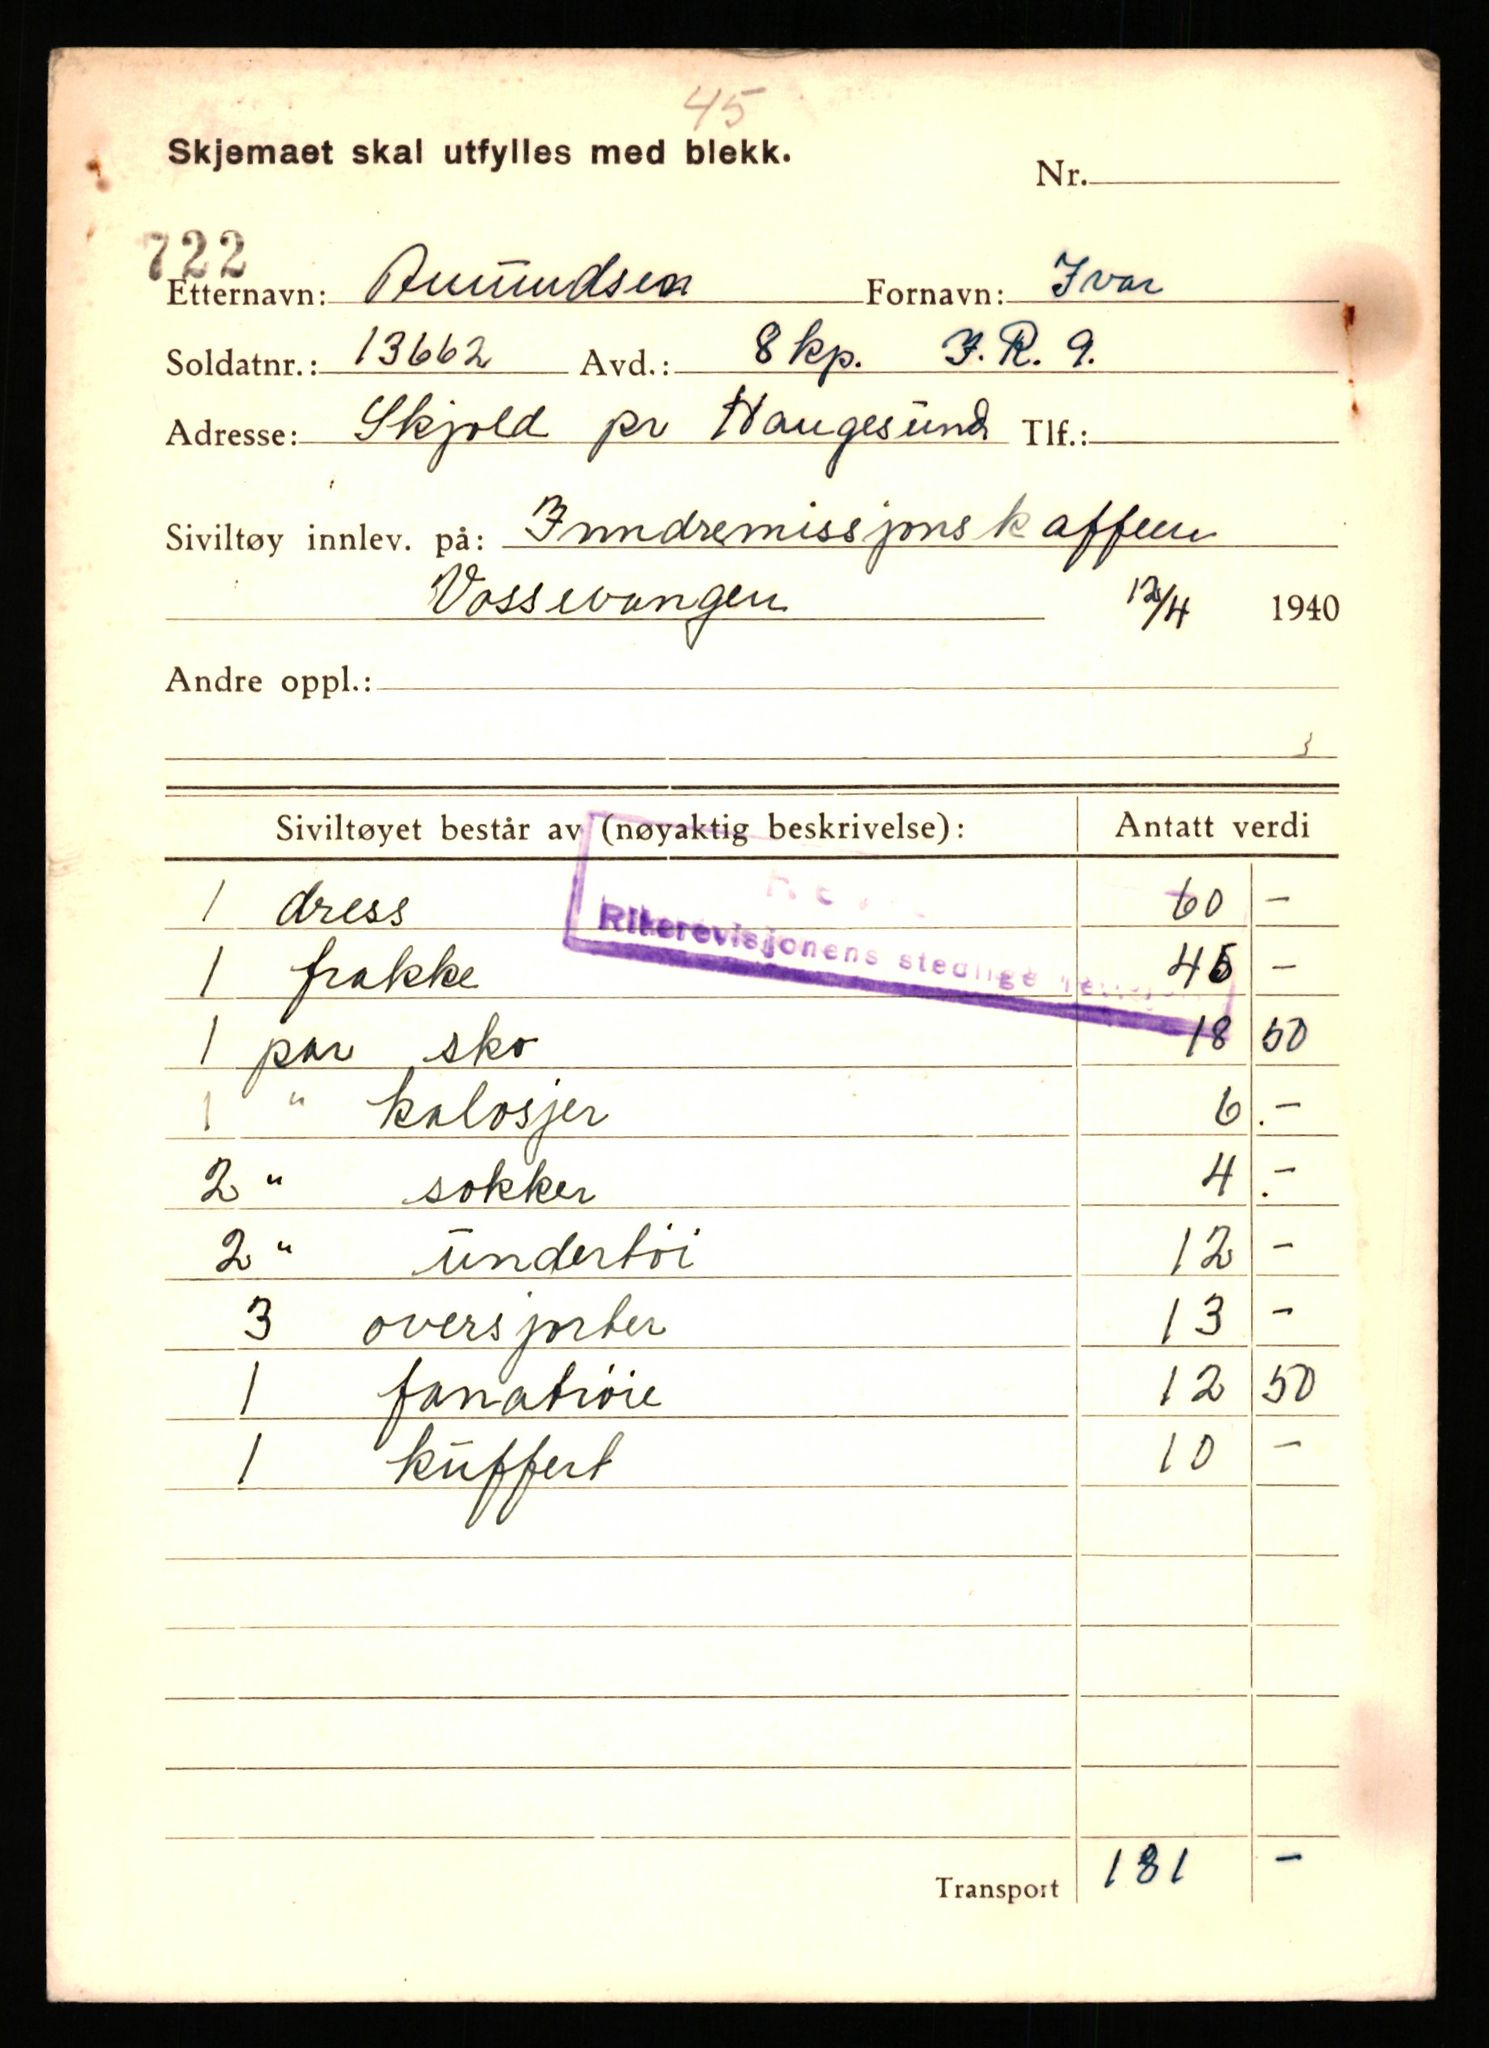 45
Skjemaet skal utfylles med blekk.
Nr.
722
Etternavn: Amundsen Fornavn: Ivar
Soldatnr.: 13662 Avd.: 8 kp. I.R. 9.
Adresse: Skjold pr Haugesund Tlf.:
Siviltøy innlev. på: Inndremissjonskaffeen
Vossevangen 12/4 1940
Andre oppl.:
Siviltøyet består av (nøyaktig beskrivelse): Antatt verdi
Riksrevisjonens stedlige
1 dress 60 -
1 frakke 45 -
1 par sko 18 50
1 " kalosjer 6 .-
2 " sokker 4 .-
2 " undertöi 12 -
3 oversjorter 13 -
1 fanatröie 12 50
1 kuffert 10 -
Transport 181 -